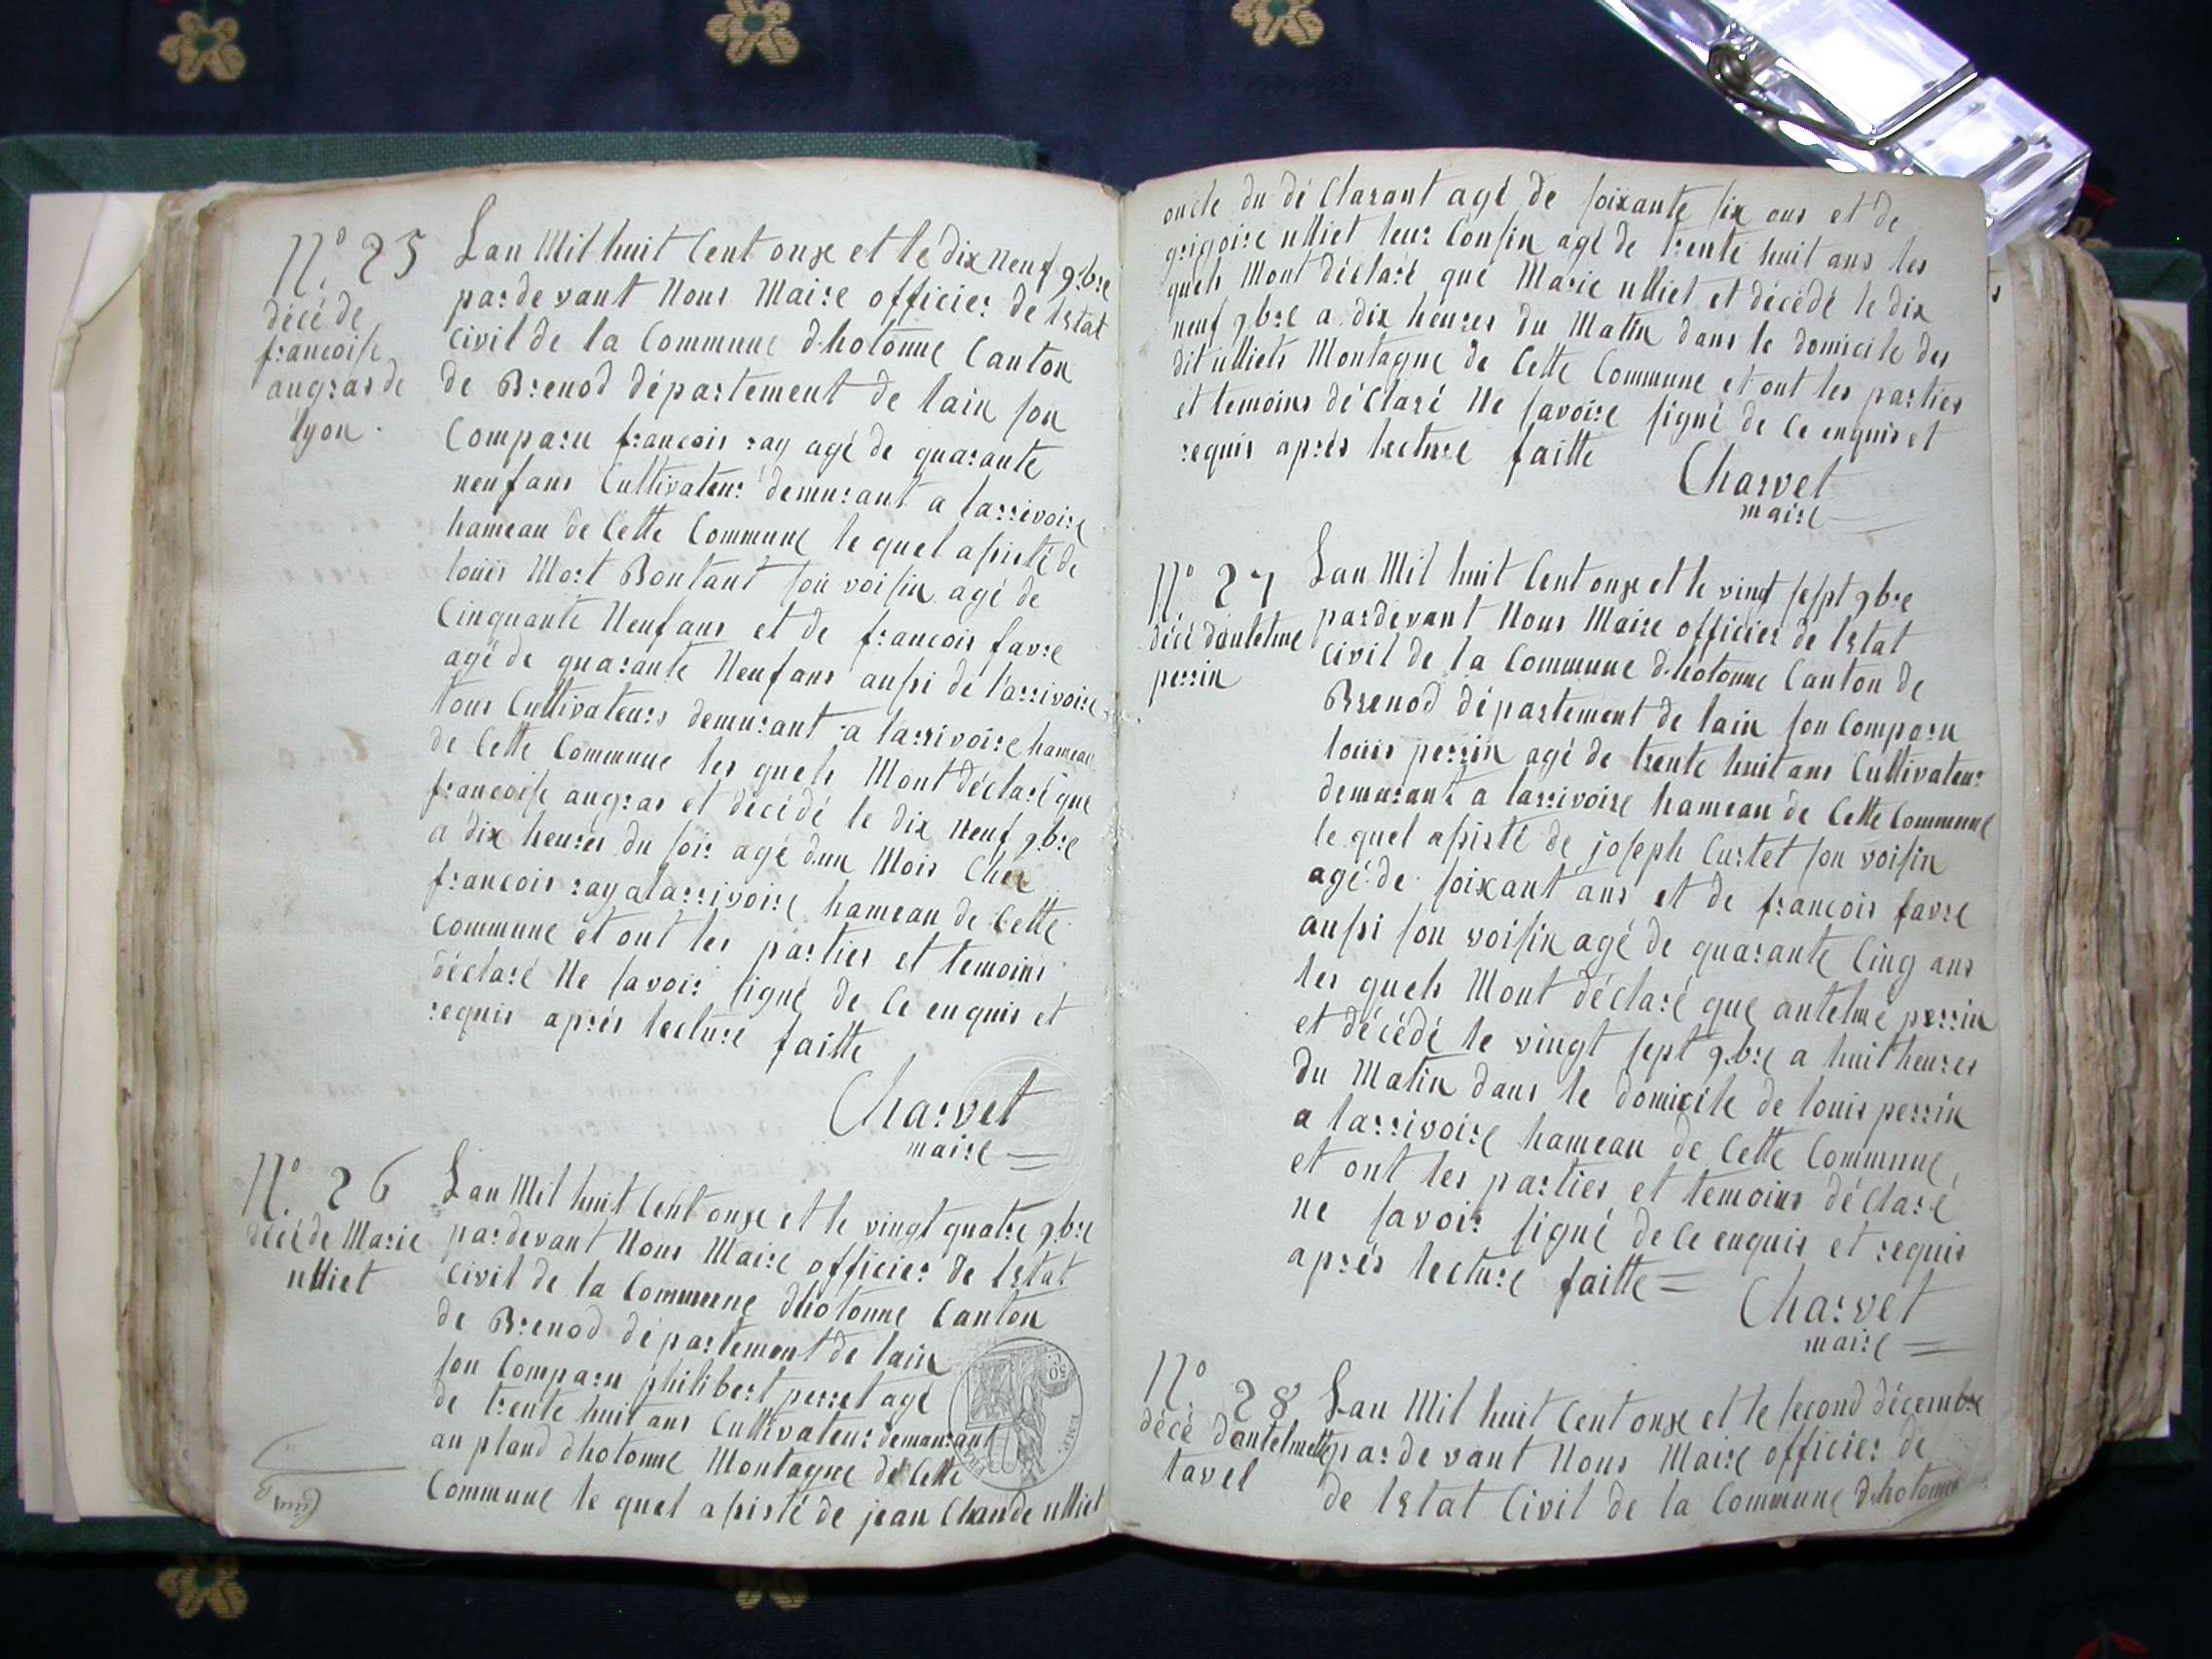 N° 25
décé de
francoise
angras de
lyon.
Lan Mil huit Cent onze et le dix neuf 9bre
pardevant Nous Maire officier de lEtat
Civil de la Commune dhotonne Canton
de Brenod département de lain son
Comparu francois ray agé de quarante
neuf ans Cultivateur demurant a larrivoire
hameau de Cette Commune le quel asisté de
louis Mort Bontant son voisin agé de
Cinquante Neuf ans et de francois favre
agé de quarante Neuf ans aussi de larrivoire
tous Cultivateurs demurant a larrivoire hameau
de Cette Commune les quels Mont déclaré que
francoise angras et décédé le dix Neuf 9bre
a dix heures du soir agé dun Mois Chez
francois ray a larrivoire hameau de Cette
Commune et ont les parties et temoins
déclaré Ne savoir signé de Ce enquis et
requis aprés lecture faitte
Charvet
maire
N° 26
décé de Marie
ulliet
Lan Mil huit Cent onze et le vingt quatre 9bre
pardevant Nous Maire officier de lEtat
Civil de la Commune dhotonne Canton
de Brenod département de lain
son Comparu philibert perret agé
de trente huit ans Cultivateur demurant
au pland dhotonne Montagne de Cette
Commune le quel asisté de jean Claude ulliet
oncle du dé Clarant agé de soixante six ans et de
grigoire ulliet leur Consin agé de trente huit ans les
quels Mont déclaré que Marie ulliet et décédé le dix
neuf 9bre a dix heures du Matin dans le domicile des
dit ulliets Montagne de Cette Commune et ont les parties
et temoins déClaré Ne savoire signé de Ce enquis et
requis aprés lecture faitte
Charvet
maire
N° 27
décé dantelme
perrin
Lan Mil huit Cent onze et le vingt sept 9bre
pardevant Nous Maire officier de lEtat
Civil de la Commune dhotonne Canton de
Brenod département de lain son Comparu
louis perrin agé de trente huit ans Cultivateur
demurant a larrivoire hameau de Cette Commune
le quel asisté de joseph Curtet son voisin
agé de soixant ans et de francois favre
aussi son voisin agé de quarante Cinq ans
les quels Mont déclaré que antelme perrin
et décédé le vingt sept 9bre a huit heures
du Matin dans le domicile de louis perrin
a larrivoire hameau de Cette Commune
et ont les parties et temoins déclaré
ne savoir signé de Ce enquis et requis
aprés lecture faitte
Charvet
maire
N° 28
décé dantelmette
tavel
Lan Mil huit Cent onze et le second décembre
pardevant Nous Maire officier de
de lEtat Civil de la Commune dhotonne